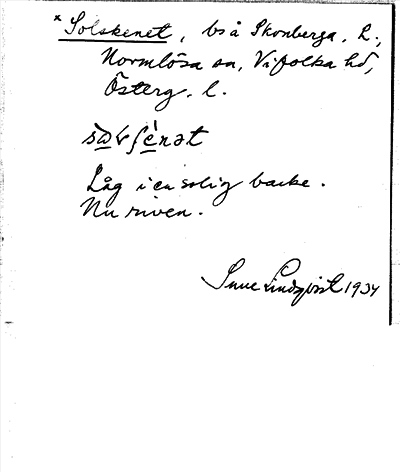 * Solskenet, bs å Skonberga, R.,
Normlösa sn, Vifolka hd,
Österg. l.
Låg i en solig backe.
Nu riven.
Sune Lindqvist 1934